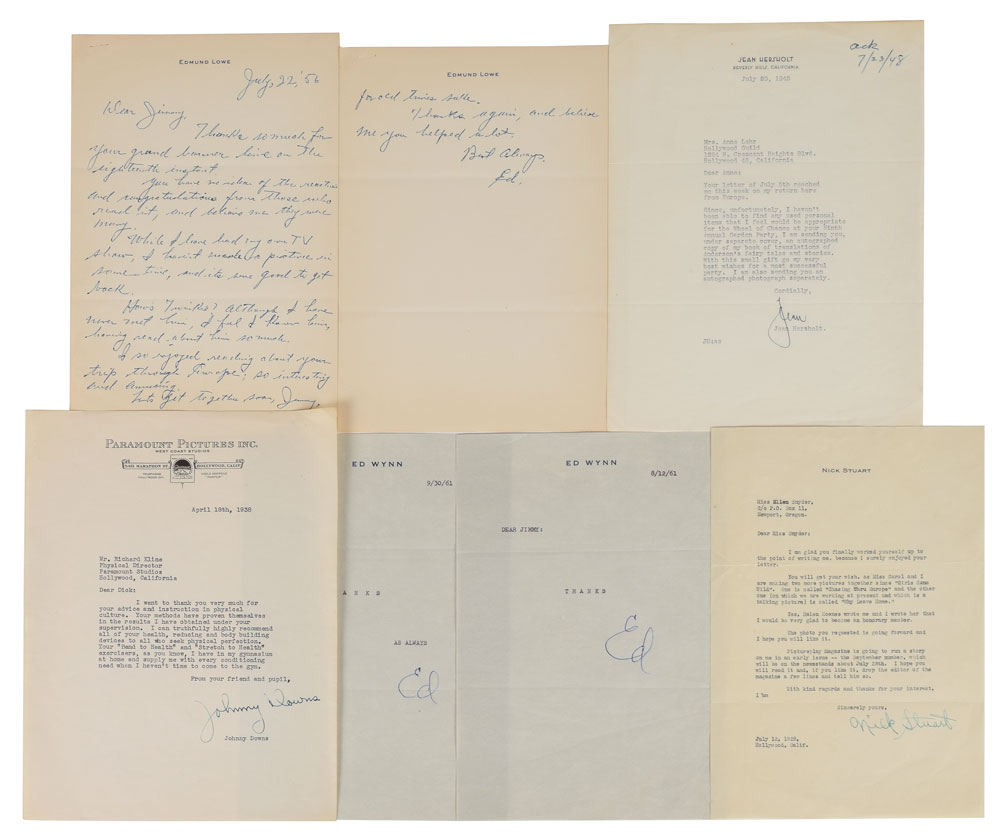 EDMUND LOWE
July, 22,'56
Dear Jimmy,
Thanks so much for
your grand banner line on the
eighteenth instant.
You have no idea of the reaction
and congratulations from those who
read it, and believe me they were
many.
While I have had my own TV
show, I haven't made a picture in
some time, and its sure good to get
back.
Hows Twinkles? Although I have
never met him, I feel I know him,
having read about him so much.
I so enjoyed reading about your
trip through Europe; so interesting
and amusing.
Lets get together soon, Jimmy,
EDMUND LOWE
for old times sake.
Thanks again, and believe
me you helped a lot.
Best Always,
Ed.
JEAN HERSHOLT
BEVERLY HILLS, CALIFORNIA
ack
7/23/48
July 20, 1948
Mrs. Anna Lehr
Hollywood Guild
S. Crescent Heights Blvd.
Hollywood 46, California
Dear Anna:
Your letter of July 6th reached
me this week on my return here
from Europe.
Since, unfortunately, I haven't
been able to find any used personal
items that I feel would be appropriate
for the Wheel of Chance at your Ninth
Annual Garden Party, I am sending you,
under separate cover, an autographed
copy of my book of translations of
Andersen's fairy tales and stories.
With this small gift go my very
best wishes for a most successful
party. I am also sending you an
autographed photograph separately.
Cordially,
Jean
Jean Hersholt.
PARAMOUNT PICTURES INC.
WEST COAST STUDIOS
5451 MARATHON ST.
HOLLYWOOD, CALIF.
April 18th, 1938
Mr. Richard Kline
Physical Director
Paramount Studios
Hollywood, California
Dear Dick:
I want to thank you very much for
your advice and instruction in physical
culture. Your methods have proven themselves
in the results I have obtained under your
supervision. I can truthfully highly recommend
all of your health, reducing and body building
devices to all who seek physical perfection.
Your "Band to Health" and "Stretch to Health"
exercisers, as you know, I have in my gymnasium
at home and supply me with every conditioning
need when I haven't time to come to the gym.
From your friend and pupil,
Johnny Downs
Johnny Downs
ED WYNN
9/30/61
A N K S
AS ALWAYS
Ed
ED WYNN
8/12/61
DEAR JIMMY:
T H A N K S
Ed
NICK STUART
Miss Ellen Snyder,
c/o P.O. Box 11,
Newport, Oregon.
Dear Miss Snyder:
I am glad you finally worked yourself up to
the point of writing me, because I surely enjoyed your
letter.
You will get your wish, as Miss Carol and I
are making two more pictures together since "Girls Gone
Wild". One is called "Chasing Thru Europe" and the other
one (on which we are working at present and which is a
talking picture) is called "Why Leave Home."
Yes, Helen wrote me and I wrote her that
I would be very glad to become an honorary member.
The photo you requested is going forward and
I hope you will like it.
Pictureplay Magazine is going to run a story
on me in an early issue -- the September number, which
will be on the newsstands about July 28th. I hope you
will read it and, if you like it, drop the editor of the
magazine a few lines and tell him so.
With kind regards and thanks for your interest,
I am
Sincerely yours,
Nick Stuart
July 12, 1929,
Hollywood, Calif.